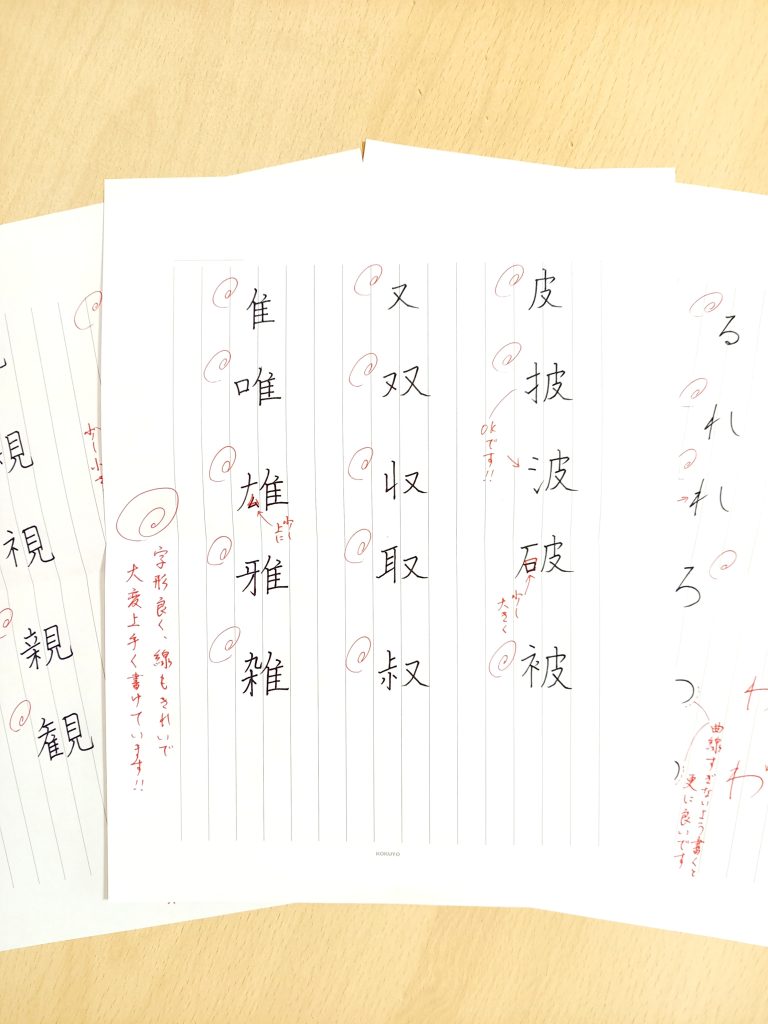 皮
披
波
破
被
OKです!!
少し
大きく
又
双
収
取
叔
隹
唯
雄
雅
雑
少し
上に
字形良く、線もきれいで
大変上手く書けています!!
KOKUYO
る
れ
れ
ろ
わ
曲線すぎないよう書くと
更に良いです
視
親
観